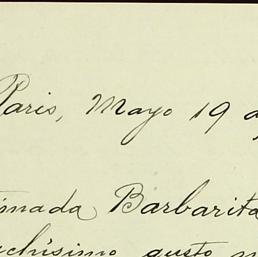 Paris, Mayo 19 d
timada Barbarita
uchísimo gusto